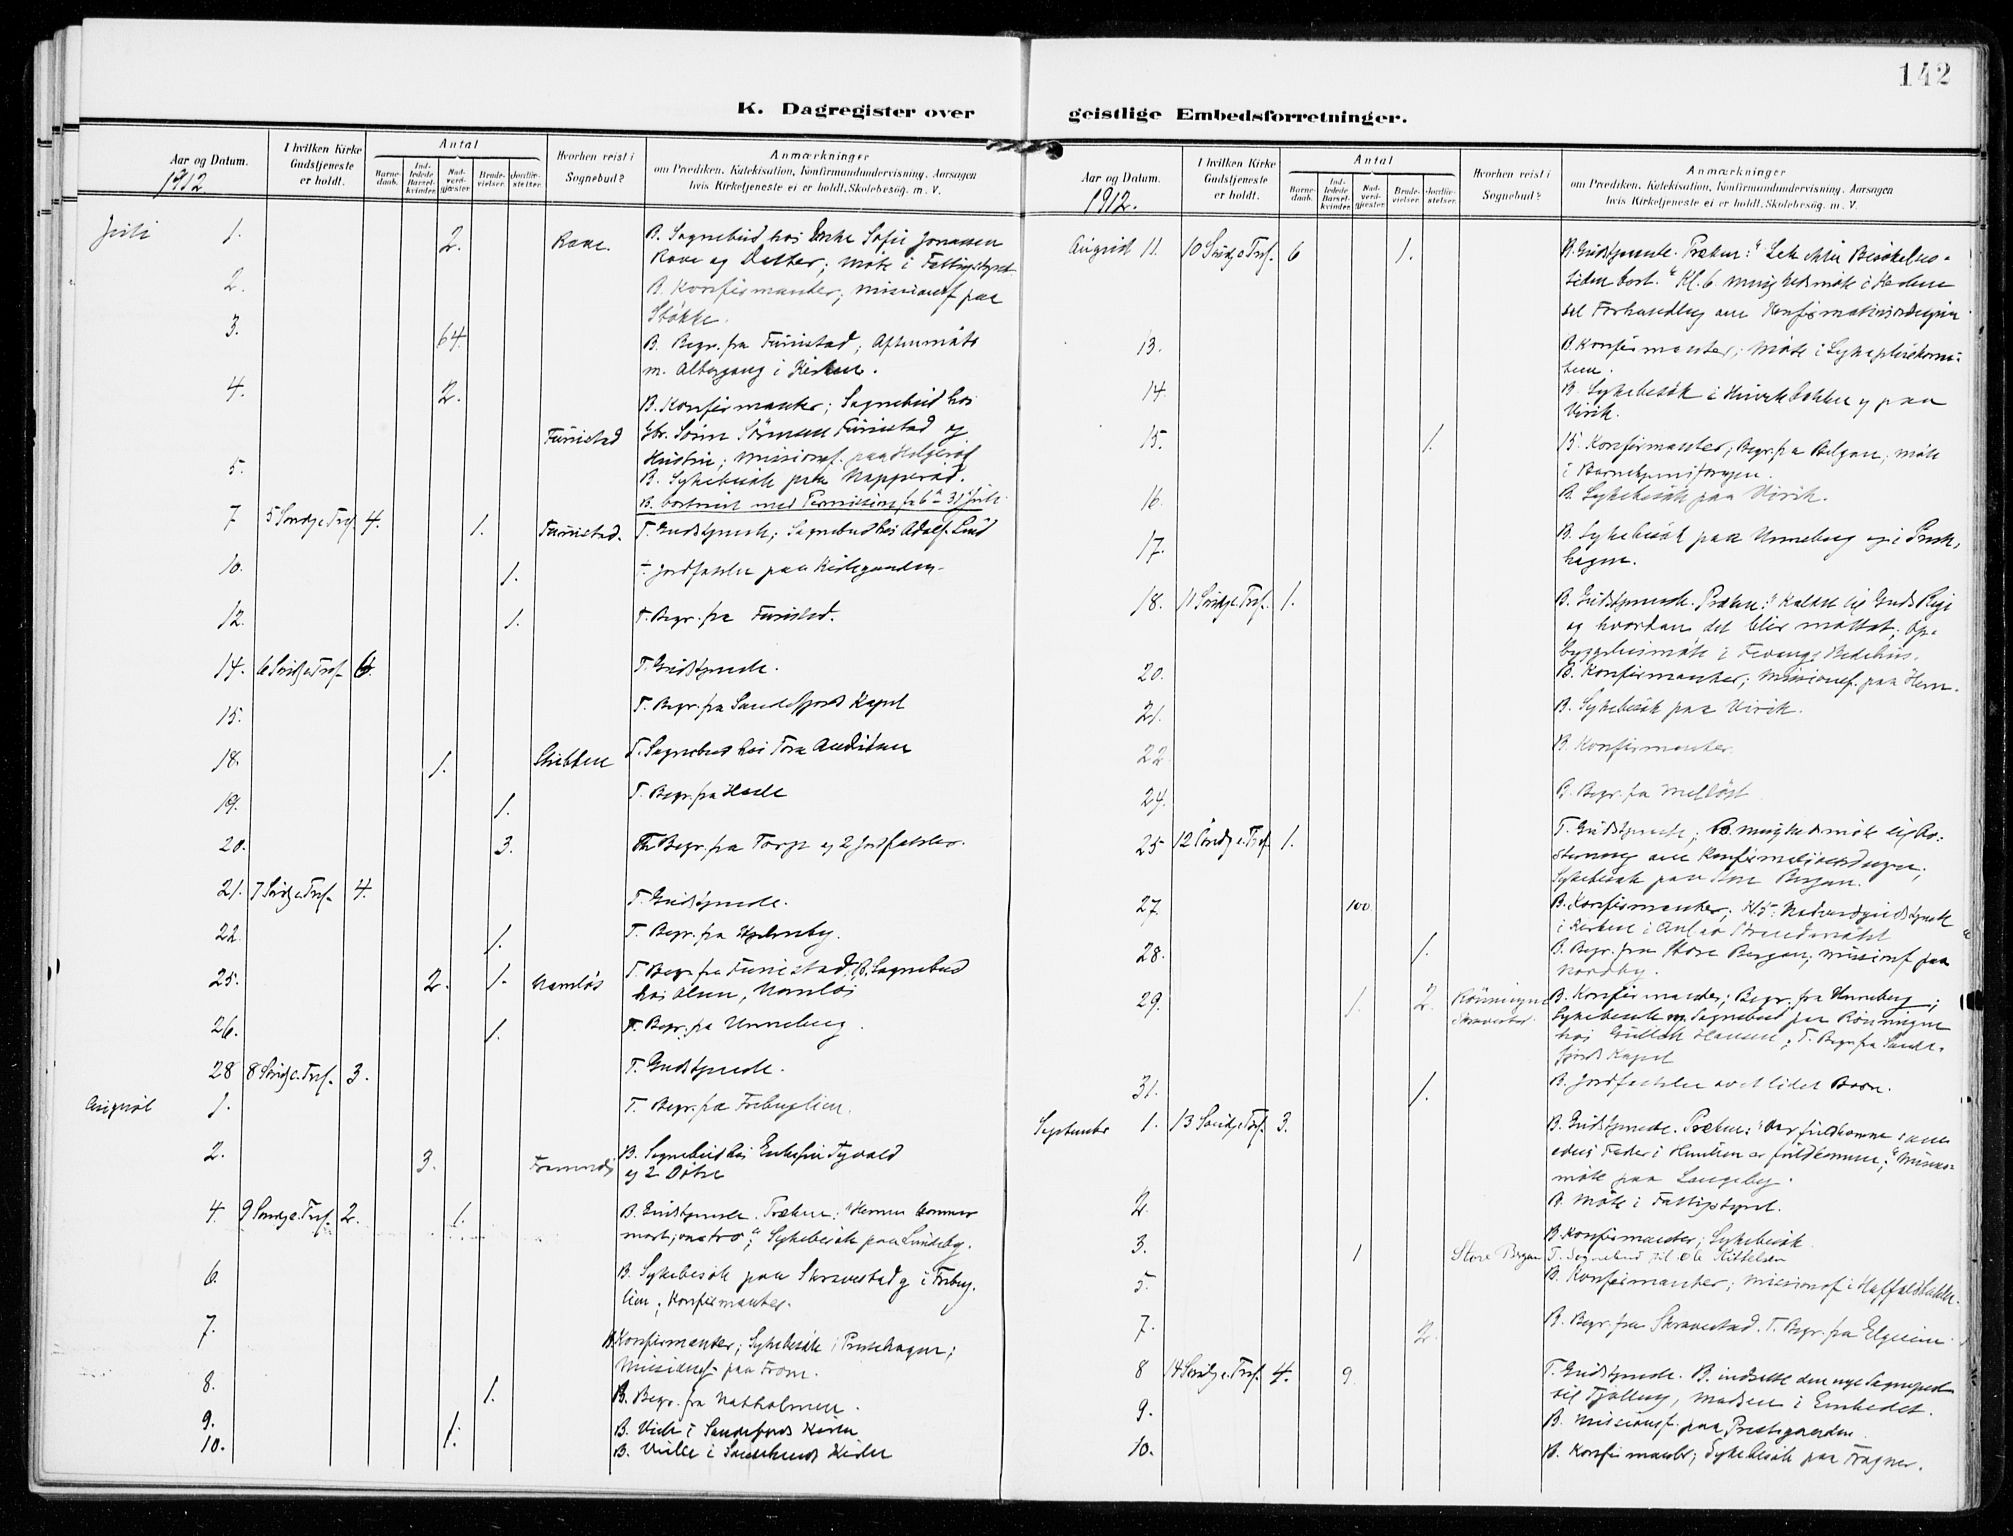 142
K. Dagregister over geistlige Embedsforretninger.
Aar og Datum.
1912
I hvilken Kirke Gudstjeneste er holdt.
Antal
Barnedaab.
Indledede Barselkvinder.
Nadverdgjæster.
Brudevielser.
Jordfæstelser.
Hvorhen reist i Sognebud?
Anmærkninger
om Prædiken, Katekisation, Konfirmandundervisning, Aarsagen
hvis Kirketjeneste ei er holdt, Skolebesög, m. V.
Juli 1. 2. Rave. B. Sognebud hos Enke Sofie Jonassen
Rave og Datter; Møte i Fattigstyret
2. B. Konfirmanter; missionsf. paa
Stokke.
3. 64. B. Begr. fra Furustad; Aftenmøte
m. Altergang i Kirken.
4. 2. B. Konfirmanter; Sognebud hos
Furustad Gbr. Søren Sørensen Furustad og
Hustru; Missionsf. paa
5. B. Sykebesøk paa Napperød.
B. bortreist med Permission fra 6te - 31 Juli.
7 5 Sondg e Tref. 4. 1. Furustad. T. Gudstjeneste; Sognebud hos Adolf Lund
10. 1. T. Jordfæstelse paa Kirkegaarden.
12. 1. T. Begr. fra Furustad.
14. 6 Sondg e Tref. 6. T. Gudstjeneste.
15. T. Begr. fra Sandefjords Kapel
18. 1. T. Sognebud hos Tora
19. 1. T. Begr. fra
20. 3. Th Begr. fra Torp og 2 Jordfæstelser.
21. 7 Sondg e. Tref. 4. T. Gudstjeneste.
22. 1. T. Begr. fra
25. 2. 1. Namløs T. Begr. fra Furustad, B. Sognebud
hos Olsen, Namløs
26. 1. T. Begr. fra Unneberg.
28 8 Sondg e. Tref. 3. T. Gudstjeneste.
August 1. T. Begr. fra
2. 3. B. Sognebud hos Enkefru
og 2 Døtre
4. 9 Sondg e. Tref. 2. 1. B. Gudstjeneste. Præken: "Herren kommer
Sykebesøk paa Lundeby.
6. B. Sykebesøk paa Skravestad og i
lien; Konfirmanter.
7. B. Konfirmanter; Sykebesøk i Presthagen;
Missionsf. paa Fram.
8. 1. B. Begr. fra Natholmen.
9. B. Vielse i Sandefjords Kirke
10. 1. B. Vielse i Sandeherreds Kirke
Aar og Datum.
1912.
I hvilken Kirke Gudstjeneste er holdt.
Antal
Barnedaab.
Indledede Barselkvinder.
Nadverdgjæster.
Brudevielser.
Jordfæstelser.
Hvorhen reist i Sognebud?
Anmærkninger
om Prædiken, Katekisation, Konfirmandundervisning, Aarsagen
hvis Kirketjeneste ei er holdt, Skolebesög, m. V.
August 11. 10 Sondg e Tref. 6 1. B. Gudstjeneste. Præken: "Let ikke Besøkelses-
tiden bort." Kl. 6 menighetsmøte i Kirken
til Forhandling om Konfirmationsordningen
13. B. Konfirmanter; Møte i
14. B. Sykebesøk i og paa
Virik.
15. 1. B. Konfirmanter; Begr. fra Bergan; møte
i
16. B. Sykebesøk paa Virik.
17. B. Sykebesøk paa Unneberg og i Prest-
hagen.
18. 11 Sondg e Tref. 1. B. Gudstjeneste. Præken: "Kaldet til Guds Rige
og hvordan det blir mottat; Op-
byggelsesmøte i Fevangs Bedehus.
20. B. Konfirmanter; Missionsf. paa Hem.
21. B. Sykebesøk paa Virik.
22 B. Konfirmanter
24. B. Begr. fra Melløst
25 12 Sondg e. Tref. 1. T. Gudstjeneste; B. menighetsmøte til Av-
stemning om Konfirmationsordningen;
Sykebesøk paa Store Bergan.
27. 100 B. Konfirmanter; Kl. 5. Nadverdgudstjeneste
i Kirken i Anl. av
28. 1. B. Begr. fra Store Bergan; missionsf. paa
Nordby.
29. 1. 2. Rønningen Skravestad. B. Konfirmanter; Begr. fra Unneberg;
Sykebesøk m. Sognebud paa Rønningen
hos Hansen; T. Begr. fra Sande-
fjords Kapel
31. 1. B. Jordfæstelse av et lidet Barn.
September 1. 13 Sondg e Tref. 3. B. Gudstjeneste. Præken: "Vær fuldkomne som
eders Fader i Himlen er fuldkommen;" Missions-
møte paa Langeby.
2. B. Møte i Fattigstyret.
3. B. Konfirmanter; Sykebesøk
1 Store Bergan T. Sognebud til Ole Kittelsen
5. B. Konfirmanter; missionsf. i
7. 2. B. Begr. fra Skravestad. T. Begr. fra
8 14 Sondg e. Tref. 4. 9. T. Gudstjeneste. B. indsætte den nye Sogneprest
til Tjølling, Madsen i Embedet.
9. B. Missionsf. paa Prestegaarden.
10. B. Konfirmanter; Sykebesøk paa